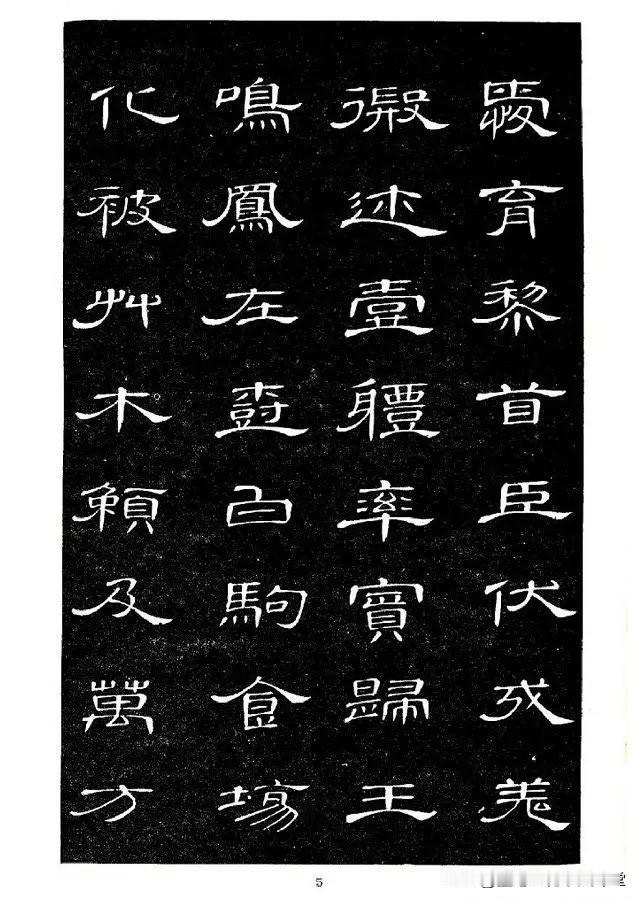 愛育黎首臣伏戎羌
遐迩壹體率賓歸王
鳴鳳在樹白駒食場
化被草木賴及萬方
5